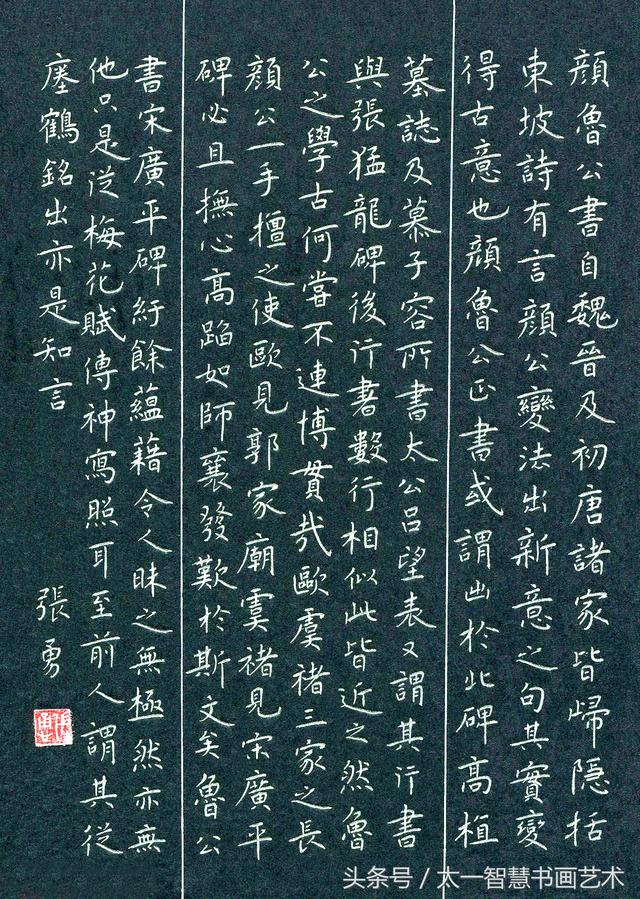 顏魯公書自魏晉及初唐諸家皆歸隱括
東坡詩有言顏公變法出新意之句其實變
得古意也顏魯公正書或謂出於此碑高植
墓誌及慕子容所書太公呂望表又謂其行書
與張猛龍碑後行書數行相似此皆近之然魯
公之學古何嘗不連博貫哉歐虞褚三家之長
顏公一手擅之使歐見郭家廟虞褚見宋廣平
碑必且撫心高蹈如師襄發歎於斯文矣魯公
書宋廣平碑紆餘蘊藉令人味之無極然亦無
他只是從梅花賦傳神寫照耳至前人謂其從
瘞鶴銘出亦是知言
張勇
头条号/太一智慧书画艺术